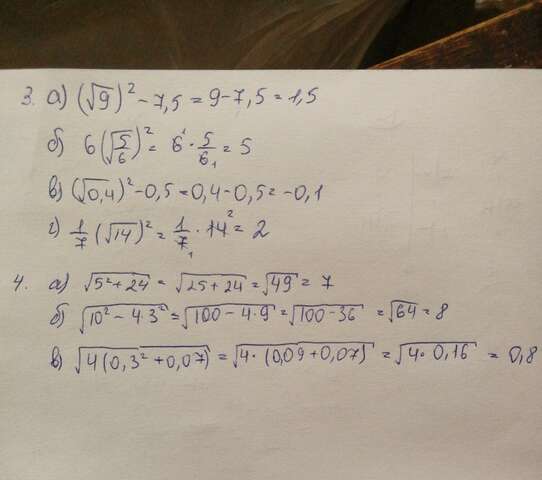 3. а) (√9)² - 7,5 = 9 - 7,5 = 1,5
б) 6(√5/6)² = 6¹ · 5/6₁ = 5
в) (√0,4)² - 0,5 = 0,4 - 0,5 = -0,1
г) 1/7 (√14)² = 1/7₁ · 14² = 2
4. а) √5² + 24 = √25 + 24 = √49 = 7
б) √10² - 4·3² = √100 - 4·9 = √100 - 36 = √64 = 8
в) √4(0,3² + 0,07) = √4·(0,09 + 0,07) = √4·0,16 = 0,8